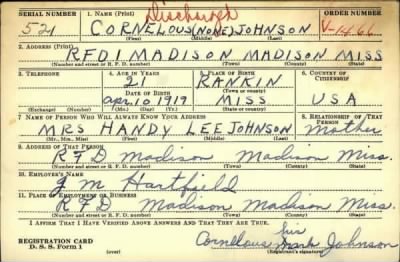 Discharged
SERIAL NUMBER 1. NAME (Print) ORDER NUMBER
521 CORNELOUS (NONE) JOHNSON V-1466
(First) (Middle) (Last)
2. ADDRESS (Print)
RFD1 MADISON MADISON MISS
(Number and street or R. F. D. number) (Town) (County) (State)
3. TELEPHONE 4. AGE IN YEARS 5. PLACE OF BIRTH 6. COUNTRY OF CITIZENSHIP
21 RANKIN
DATE OF BIRTH (Town or county)
Apr. 10 1919 MISS USA
(Exchange) (Number) (Mo.) (Day) (Yr.) (State or country)
7. NAME OF PERSON WHO WILL ALWAYS KNOW YOUR ADDRESS 8. RELATIONSHIP OF THAT PERSON
MRS HANDY LEE JOHNSON Mother
(Mr., Mrs., Miss) (First) (Middle) (Last)
9. ADDRESS OF THAT PERSON
RFD Madison Madison Miss.
(Number and street or R. F. D. number) (Town) (County) (State)
10. EMPLOYER'S NAME
J. M Hartfield
11. PLACE OF EMPLOYMENT OR BUSINESS
RFD Madison Madison Miss.
(Number and street or R. F. D. number) (Town) (County) (State)
I AFFIRM THAT I HAVE VERIFIED ABOVE ANSWERS AND THAT THEY ARE TRUE.
REGISTRATION CARD
D. S. S. Form 1 (over)
Cornelous his mark Johnson
(Registrant's signature)